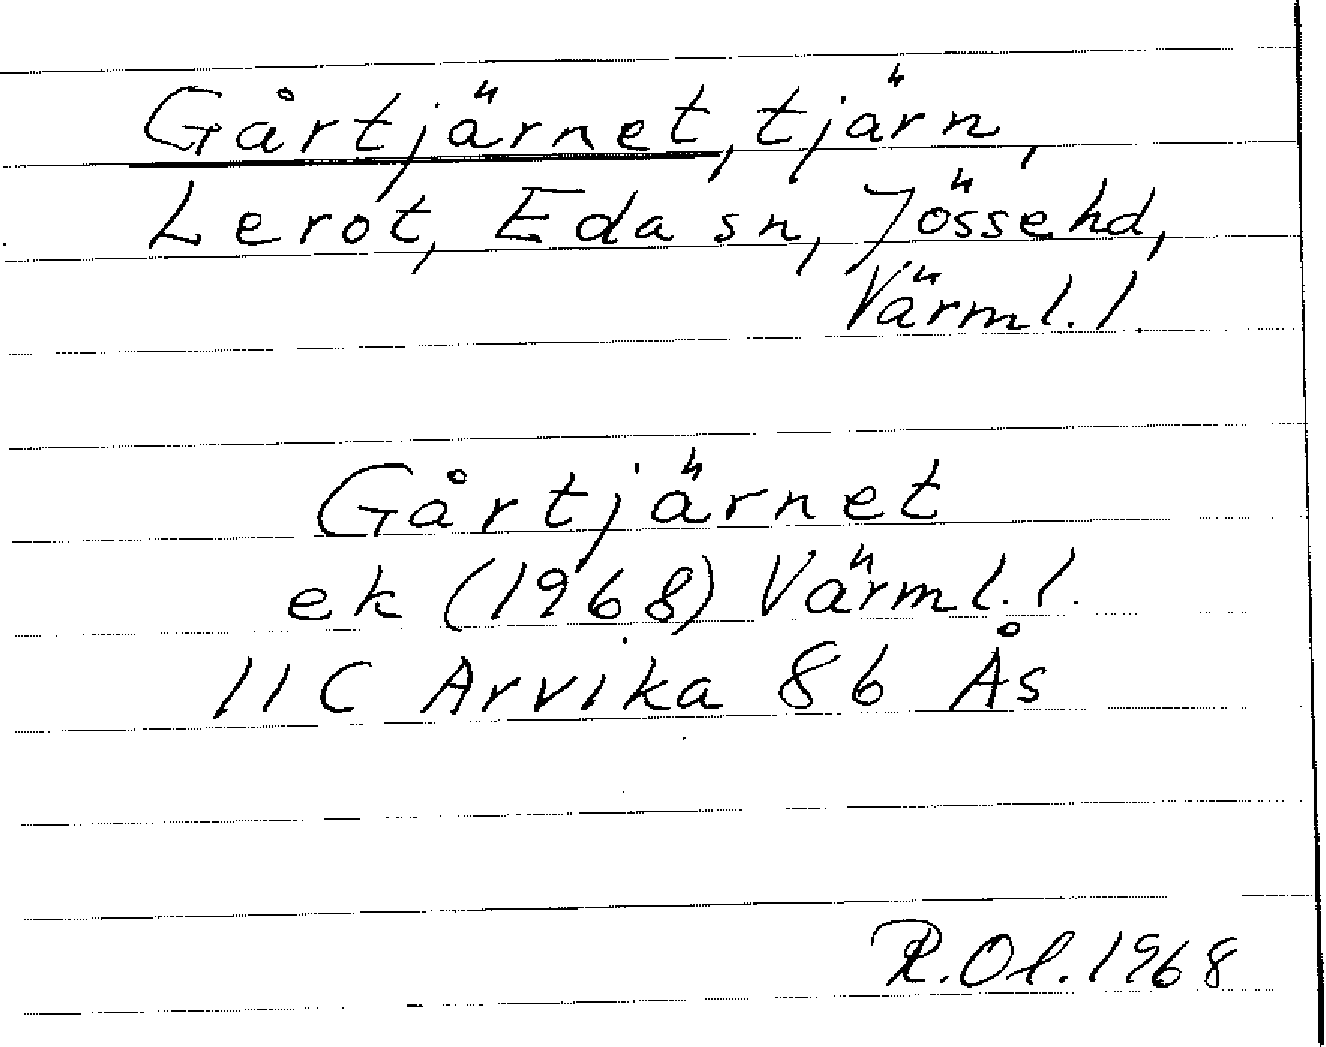 Gårtjärnet, tjärn,
Lerot, Eda sn, Jössehd,
Värml. l.
Gårtjärnet
ek (1968) Värml. l.
11C Arvika 8b Ås
R.Ol. 1968